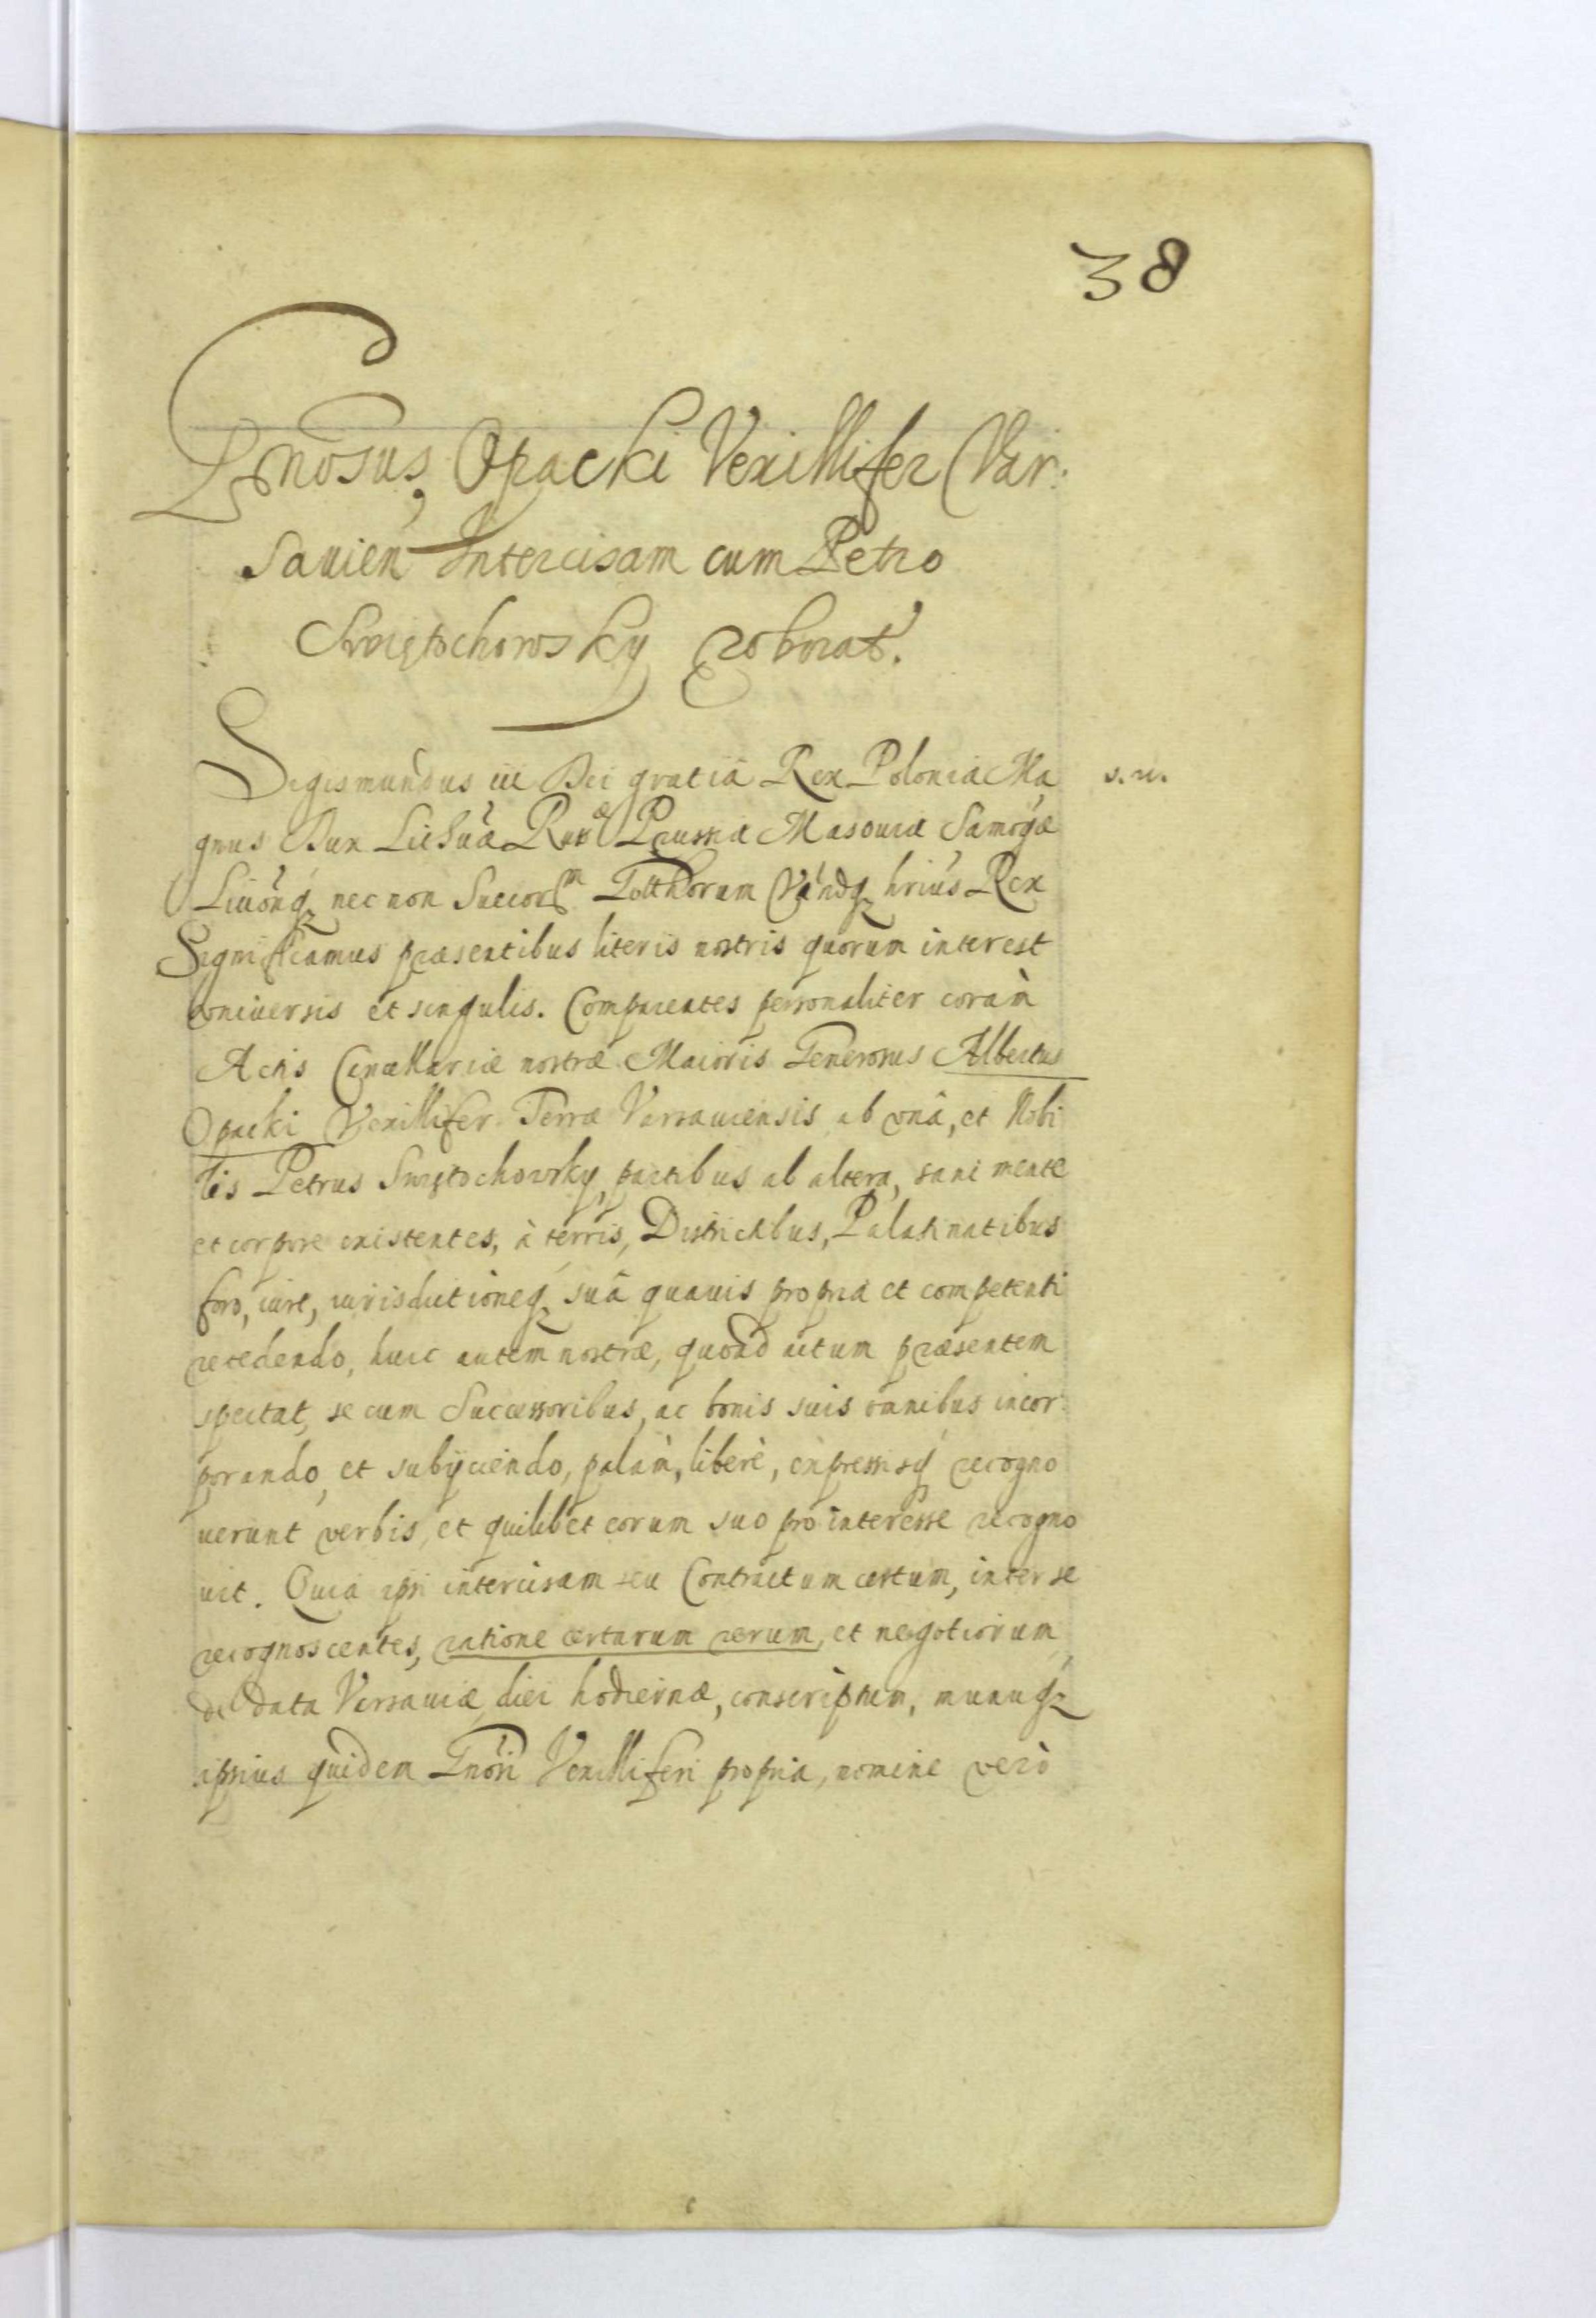 38
Gnosus, Opacki Vexillifer Var:
sauien Intercisam cum Petro
Swiętochowsky roborat.
Sigismundus iii Dei gratia Rex Poloniæ Ma s. n.
gnus Dux Lithuæ Russæ Prussiæ Masouiæ Samogæ
Liuonq nec non Suecorm Gotthorum Vandq hrius Rex
Significamus præsentibus literis nostris quorum interest
vniuersis et singulis. Comparentes personaliter coràm
Actis Cancellariæ nostræ Maioris Generosus Albertus
Opacki Vexillifer Terræ Varsauiensis ab vnâ, et Nobi
lis Petrus Swiętochowsky, partibus ab altera, sani mente
et corpore existentes, à terris, Districtibus, Palatinatibus
foro, iure, iurisdictioneq suâ quauis propria et competenti
recedendo, huic autem nostræ, quoad actum præsentem
spectat, se cum Successoribus, ac bonis suis omnibus incor
porando, et subijciendo, palàm, liberè, expressisq recogno
uerunt verbis, et quilibet eorum suo pro interesse recogno
uit. Quia ipsi intercisam seu Contractum certum, inter se
recognoscentes, ratione certarum rerum, et negotiorum,
de data Varsauiæ, diei hodiernæ, conscriptum, manuq
ipsius quidem Gnosi Vexilliferi propria, nomine verò